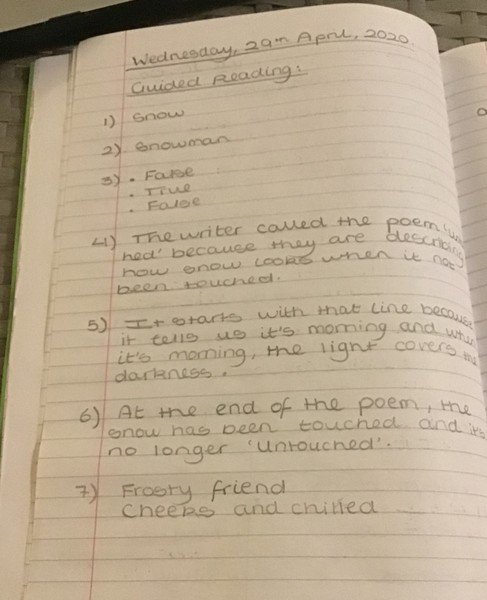 Wednesday, 29th April, 2020.
Guided Reading:
1) Snow
2) Snowman
3) . False
. True
. False
4) The writer called the poem
hed' because they are describing
how snow looks when it not
been touched.
5) It starts with that line because
it tells us it's morning and when
it's morning, the light covers the
darkness.
6) At the end of the poem, the
snow has been touched and it's
no longer 'untouched'.
7) Frosty friend
Cheeks and chilled